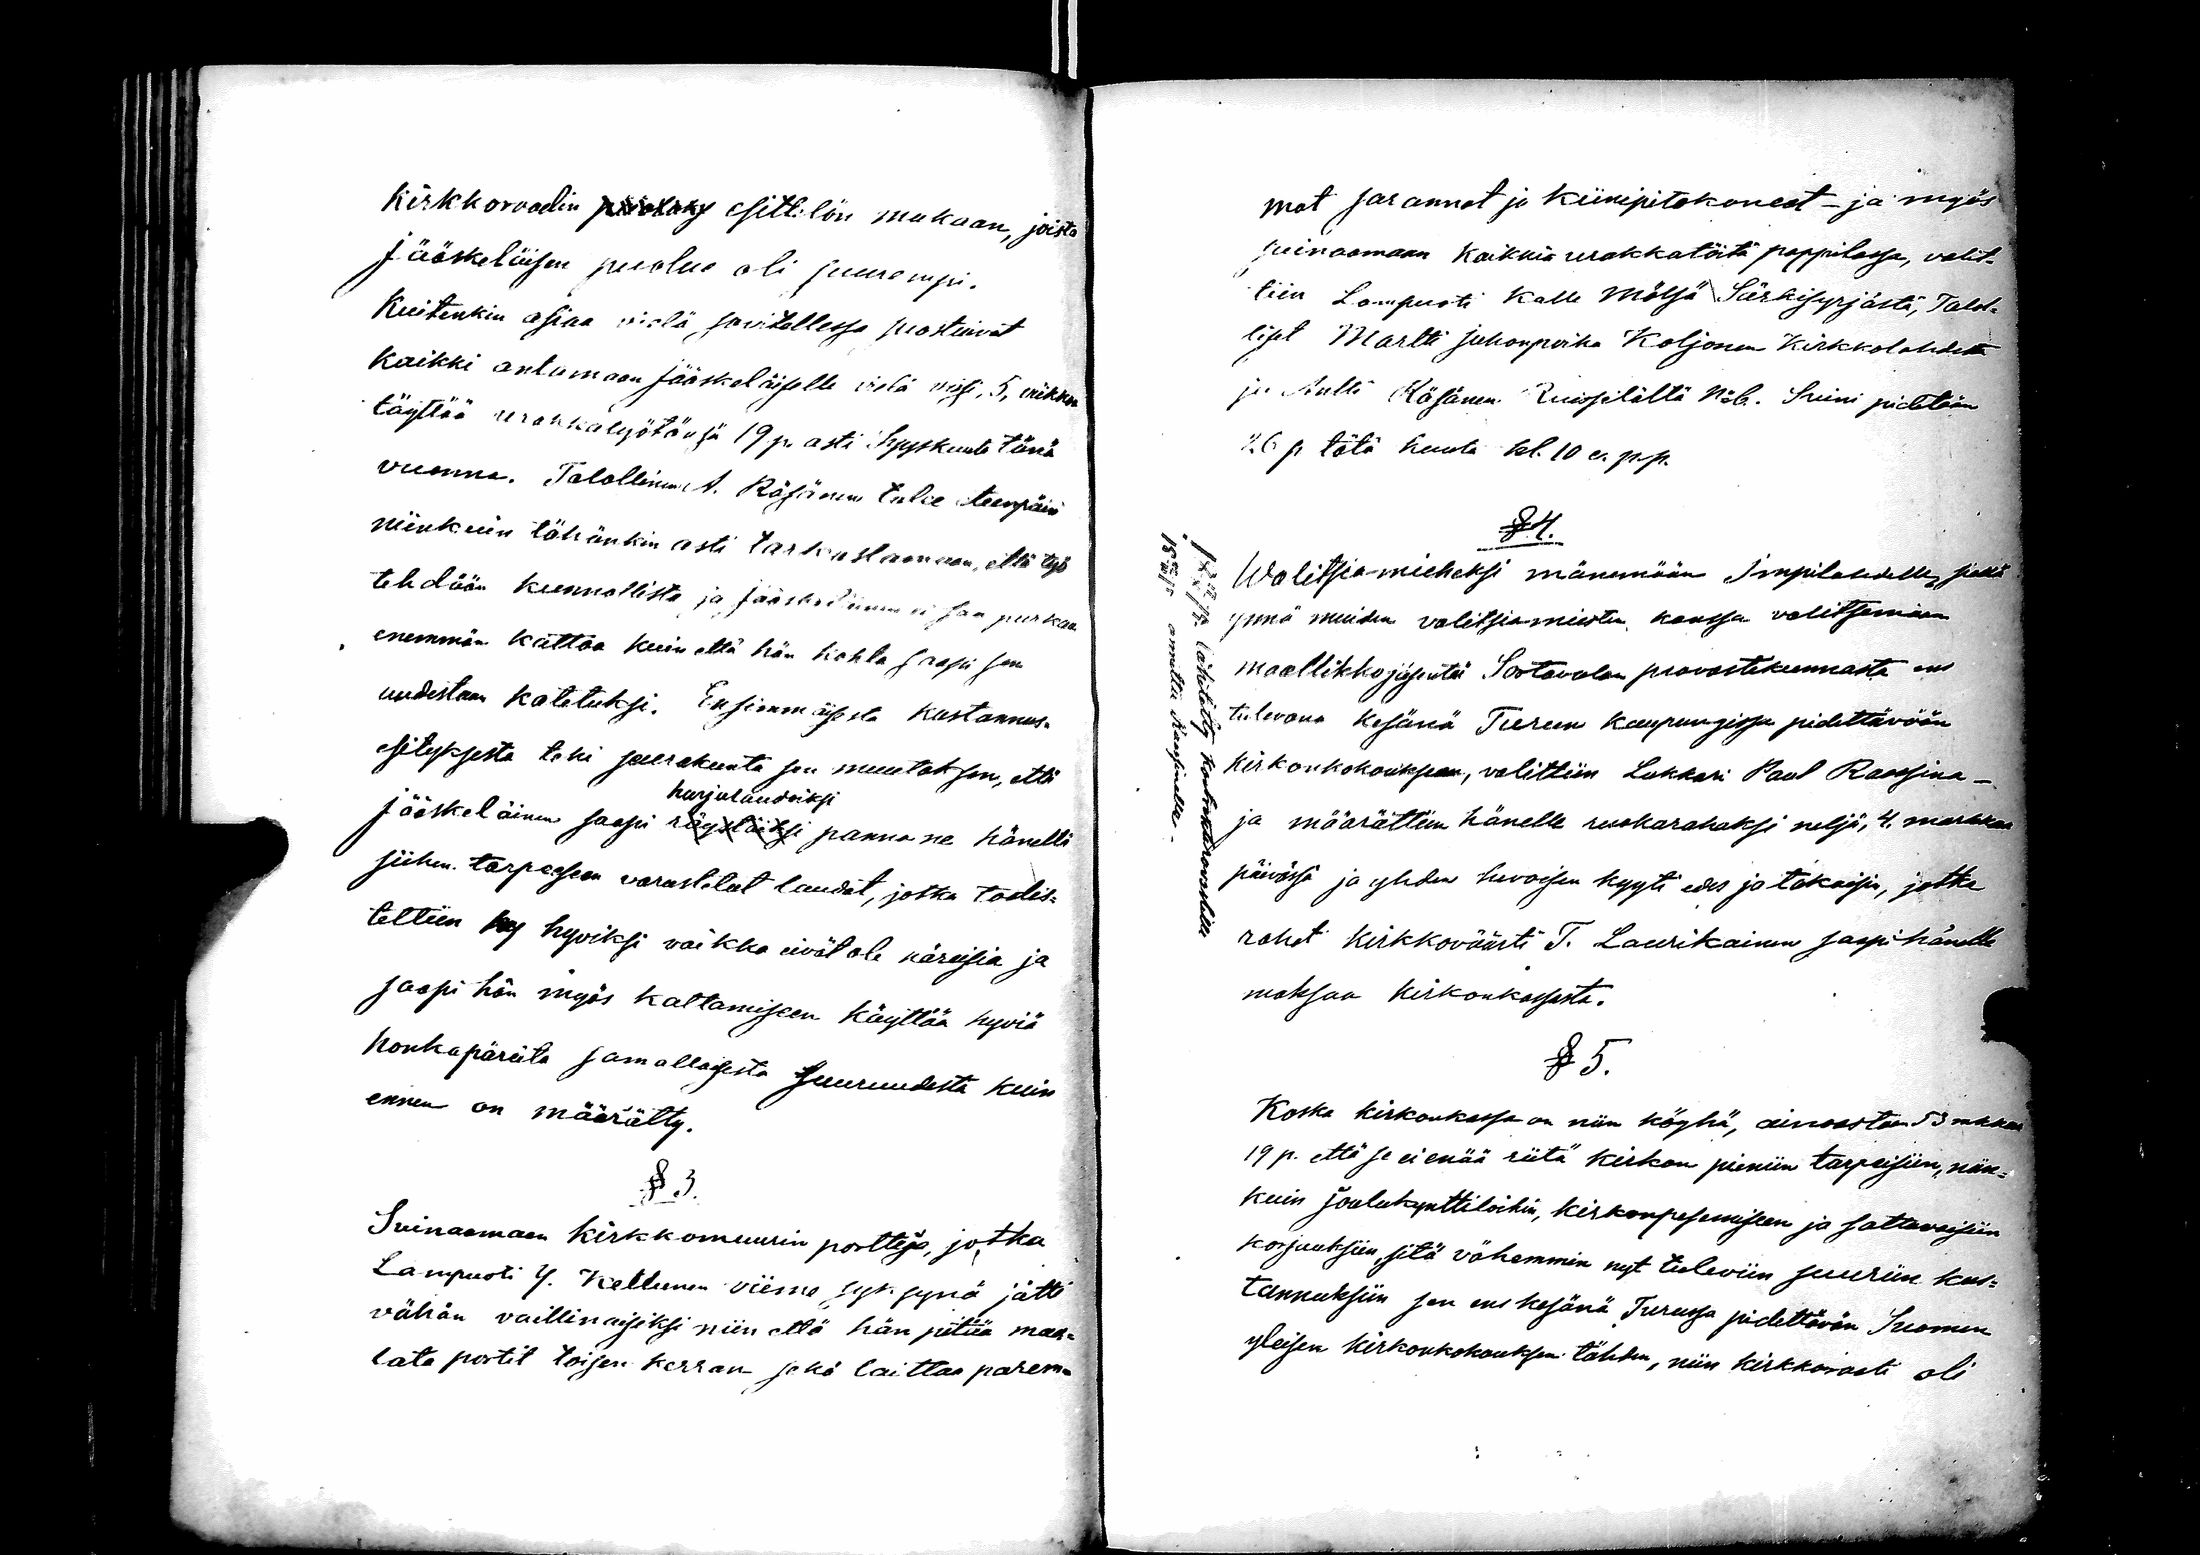 Kirkkoraadin esittelön mukaan, joista
Jääskeläisen puolue oli suurempi.
Kuitenkin asiaa vielä sovitellessa suostuivat
kaikki antamaan Jääskeläiselle vielä viisi, 5, viikkoa
täyttää urakkatyötänsä 19 p. asti Syyskuuta tänä
vuonna. Talollinen A. Räsänen tulee eteenpäin
niinkuin tähänkin asti tarkastamaan, että työ
tehdään kunnollista ja Jääskeläinen ei saa purkaa
enemmän kattoa kuin että hän kohta saapi sen
uudestaan katetuksi. Ensimmäisestä kustannus-
esityksestä teki seurakunta sen muutoksen, että
harjalaudoiksi
Jääskeläinen saapi räystäiksi panna ne hänelle
siihen tarpeeseen varustetut laudat, jotka todis-
tettiin hyviksi vaikka eivät ole näreisiä ja
saapi hän myös kattamiseen käyttää hyviä
honkapäreitä samallaisesta suuruudesta kuin
ennen on määrätty.
§ 3.
Syinäämään kirkkomuurin portteja, jotka
Lampuoti Y. Kettunen viime syksynä jätti
vähän vaillinaisiksi niin että hän pitää maa-
lata portit toisen kerran sekä laittaa parem-
mat sarannat ja kiinipitokoneet – ja myös
syinäämään kaikkia urakkatöitä pappilassa, valit-
tiin Lampuoti Kalle Mölsä Särkisyrjästä, Talol-
liset Martti Juhonpoika Koljonen Kirkkolahdesta
ja Antti Räsänen Ruispelältä No 6. Syini pidetään
26 p. tätä kuuta kl. 10 e. p.p.
§ 4.
Walitsia-mieheksi mänemään Impilahdelle, siellä
ynnä muiden valitsia-miesten kanssa valitsemaan
maallikkojäsentä Sortavalan provastikunnasta ens
tulevana kesänä Turun kaupungissa pidettävään
kirkonkokoukseen, valittiin Lukkari Paul Raassina –
ja määrättiin hänelle ruokarahaksi neljä, 4, markkaa
päivässä ja yhden hevoisen kyyti edes ja takaisin, jotka
rahat kirkkoväärti T. Laurikainen saapi hänelle
maksaa kirkonkassasta.
§ 5.
Koska kirkonkassa on niin köyhä, ainoastaan 53 markkaa
19 p. että se ei enää riitä kirkon pieniin tarpeisiin, niin-
kuin joulukynttilöihin, kirkonpesemiseen ja sattuvaisiin
korjauksiin, sitä vähemmin nyt tuleviin suuriin kus-
tannuksiin sen ens kesänä Turussa pidettävän Suomen
yleisen kirkonkokouksen tähden, niin kirkkoraati oli